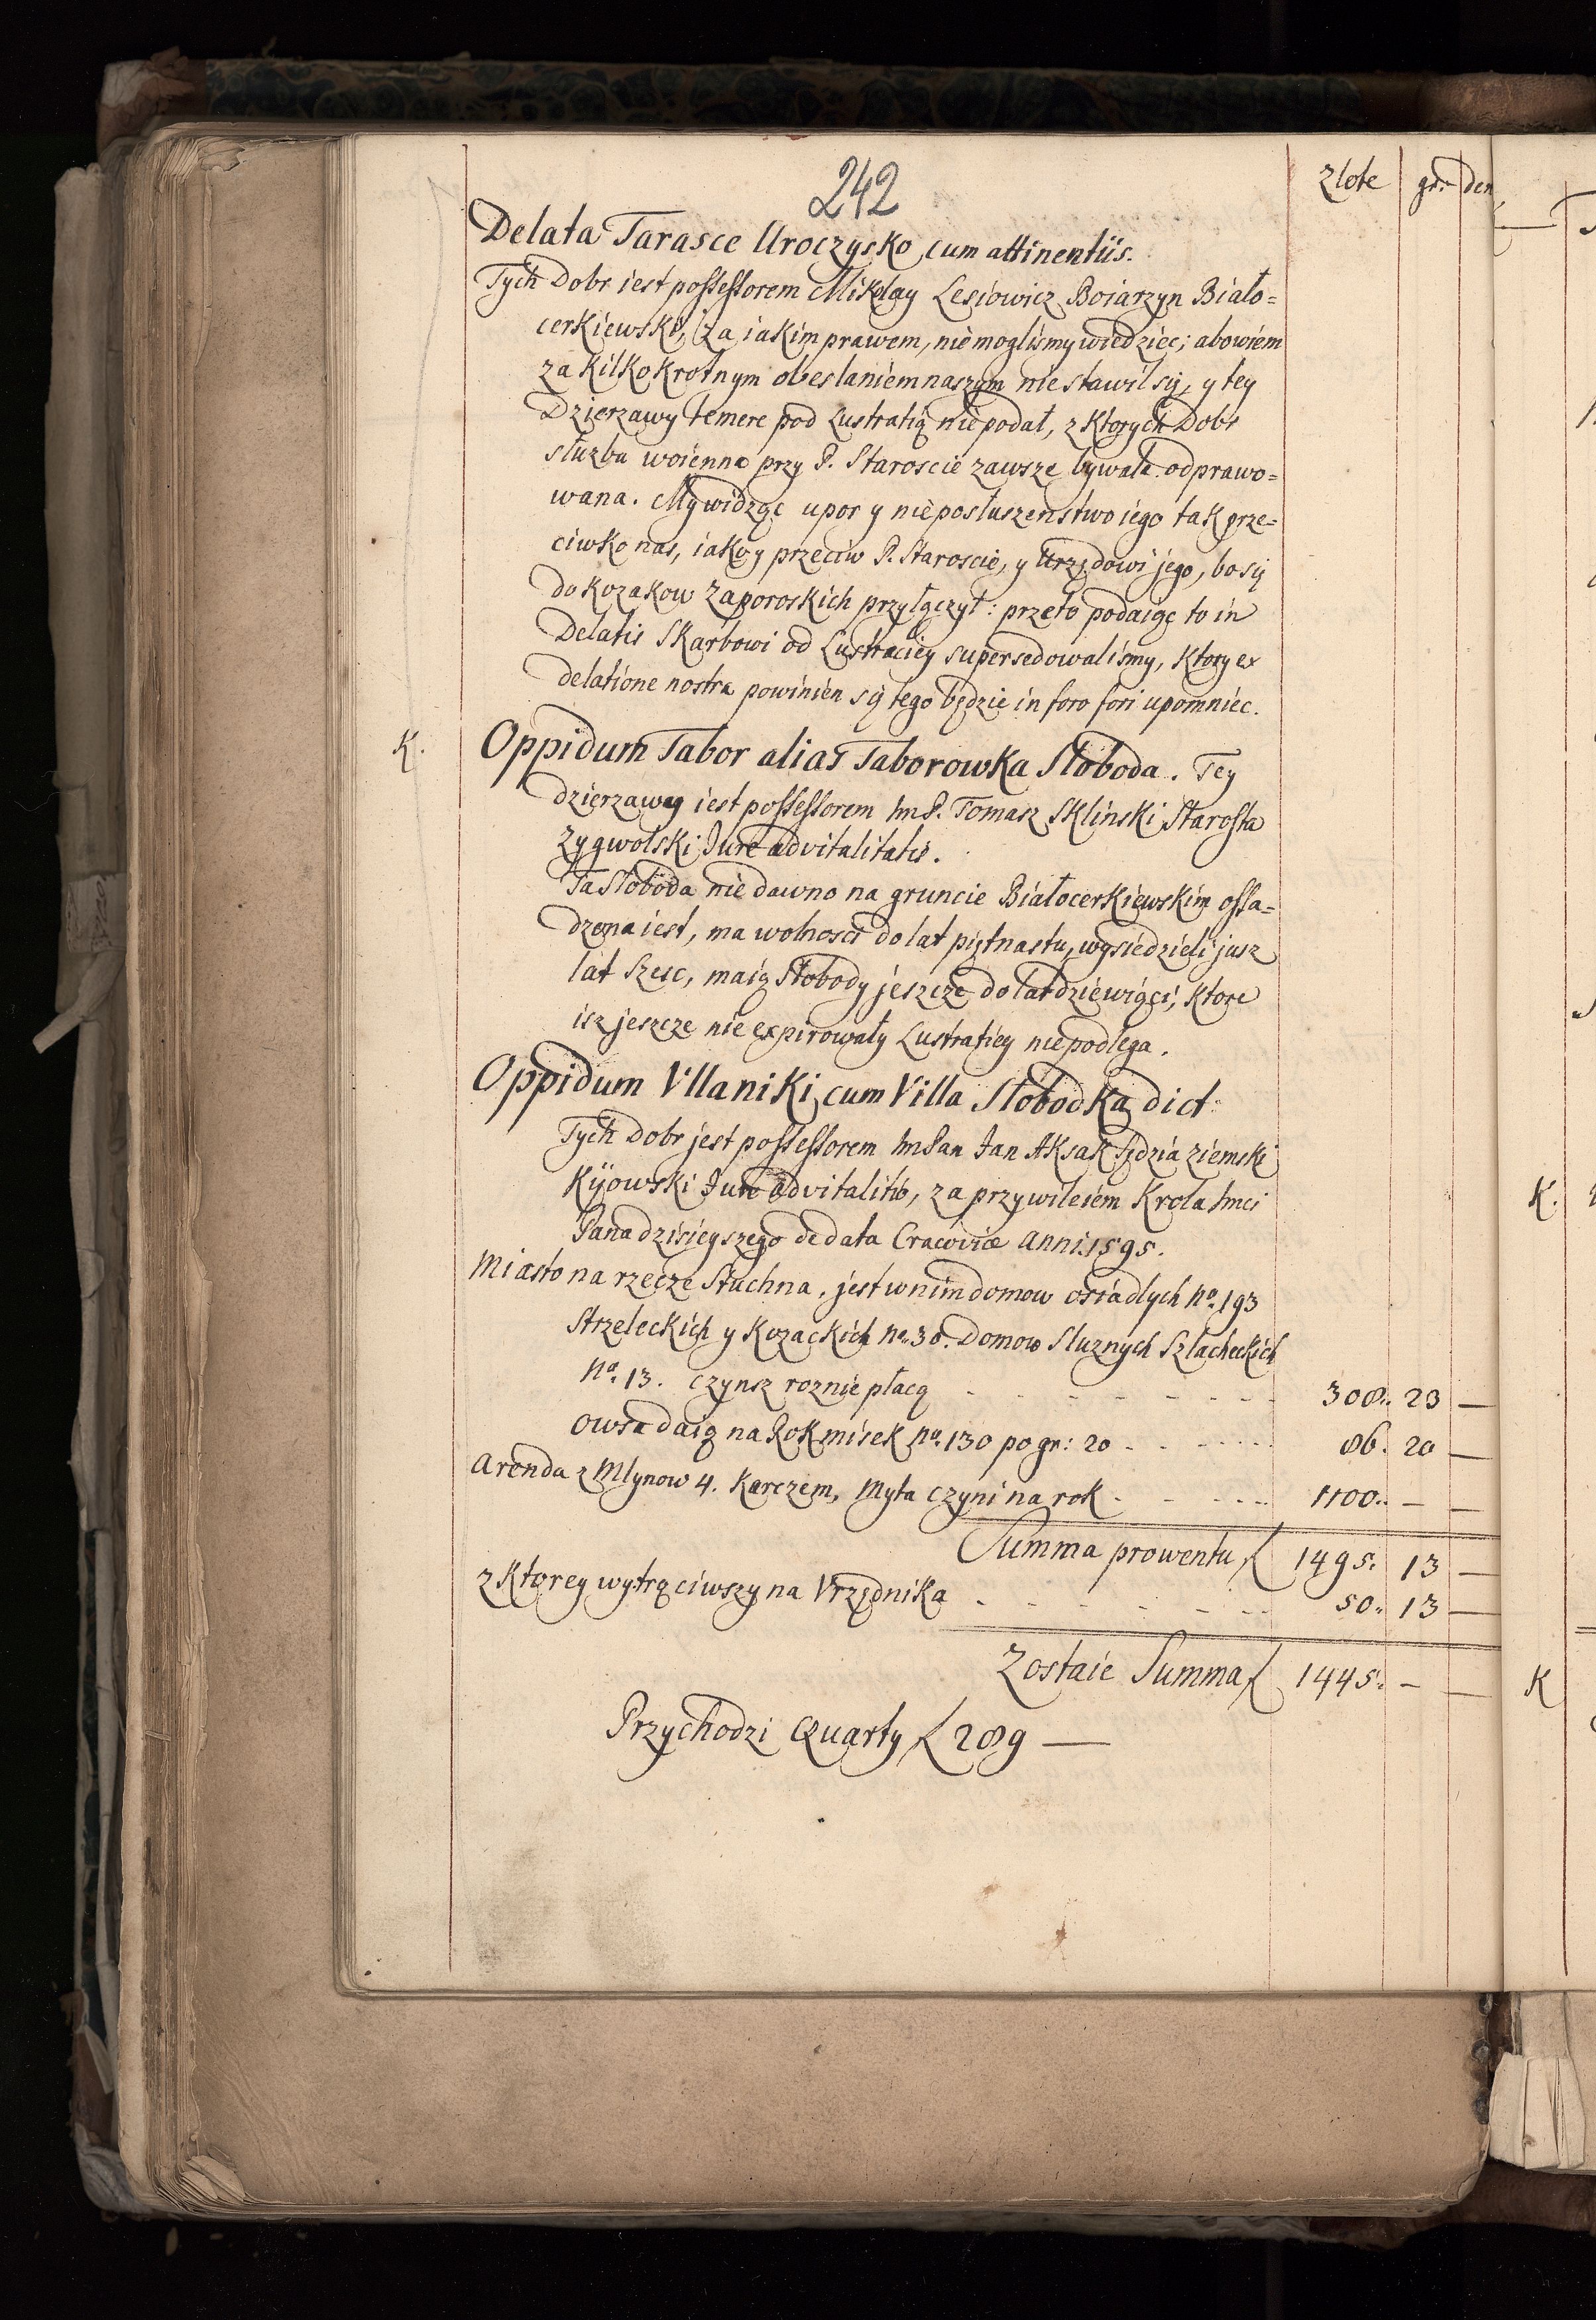 242
Zlote gr: den
Delata Tarasce Uroczysko cum attinentiis.
Tych Dobr iest possessorem Mikolay Lesiowicz Boiarzyn Biało=
cerkiewski, za iakim prawem, nie moglismy wiedziec; abowiem
za kilkokrotnym obeslaniem naszym nie stawił się, y tey
Dzierzawy temere pod Lustratią nie podał, z ktorych Dobr
słuzba woienna przy P. Staroscie zawsze bywała odprawo=
wana. My widząc upor y nieposłuszenstwo iego tak prze=
ciwko nas, iako y przeciw P. Staroscie, y Urzędowi jego, bo się
do Kozakow Zaporoskich przyłączył: przeto podaiąc to in
Delatis Skarbowi od Lustraciey supersedowalismy, ktory ex
delatione nostra powinien się tego będzie in foro fori upomniec.
K. Oppidum Tabor alias Taborowka Słoboda. Tey
dzierzawy iest possessorem ImP. Tomasz Sklinski Starosta
Zygwolski Jure advitalitatis.
Ta Słoboda nie dawno na gruncie Białocerkiewskim ossa=
dzona iest, ma wolnosci do lat piętnastu, wysiedzieli jusz
lat szesc, maią Słobody jeszcze do lat dziewiąci, ktore
isz jeszcze nie expirowały Lustratiey nie podlega.
Oppidum Vllaniki cum Villa Słobodka dict:
Tych Dobr jest possessorem ImPan Jan Aksak Sędzia ziemski
Kijowski Jure advitalitio, za przywileiem Krola Jmci
Pana dzisieyszego de data Cracoviæ anni 1595.
Miasto na rzecze Stuchna, jest w nim domow osiadlych No. 193
Strzeleckich y Kozackich No. 30. Domow Sluznych Szlacheckich
No. 13. czynsz roznie płacą - - - - - - - 308.. 23 —
Owsa daią na Rok misek No. 130 po gr: 20 - - - - - 86. 20 —
Arenda z Mlynow 4. Karczem, Myta czyni na rok - - - - - 1100.. — —
Summa prowentu 1495. 13 —
z ktorey wytrąciwszy na Vrzędnika - - - - - - - 50.. 13 —
Zostaie Summa 1445. — —
Przychodzi Quarty 289 —